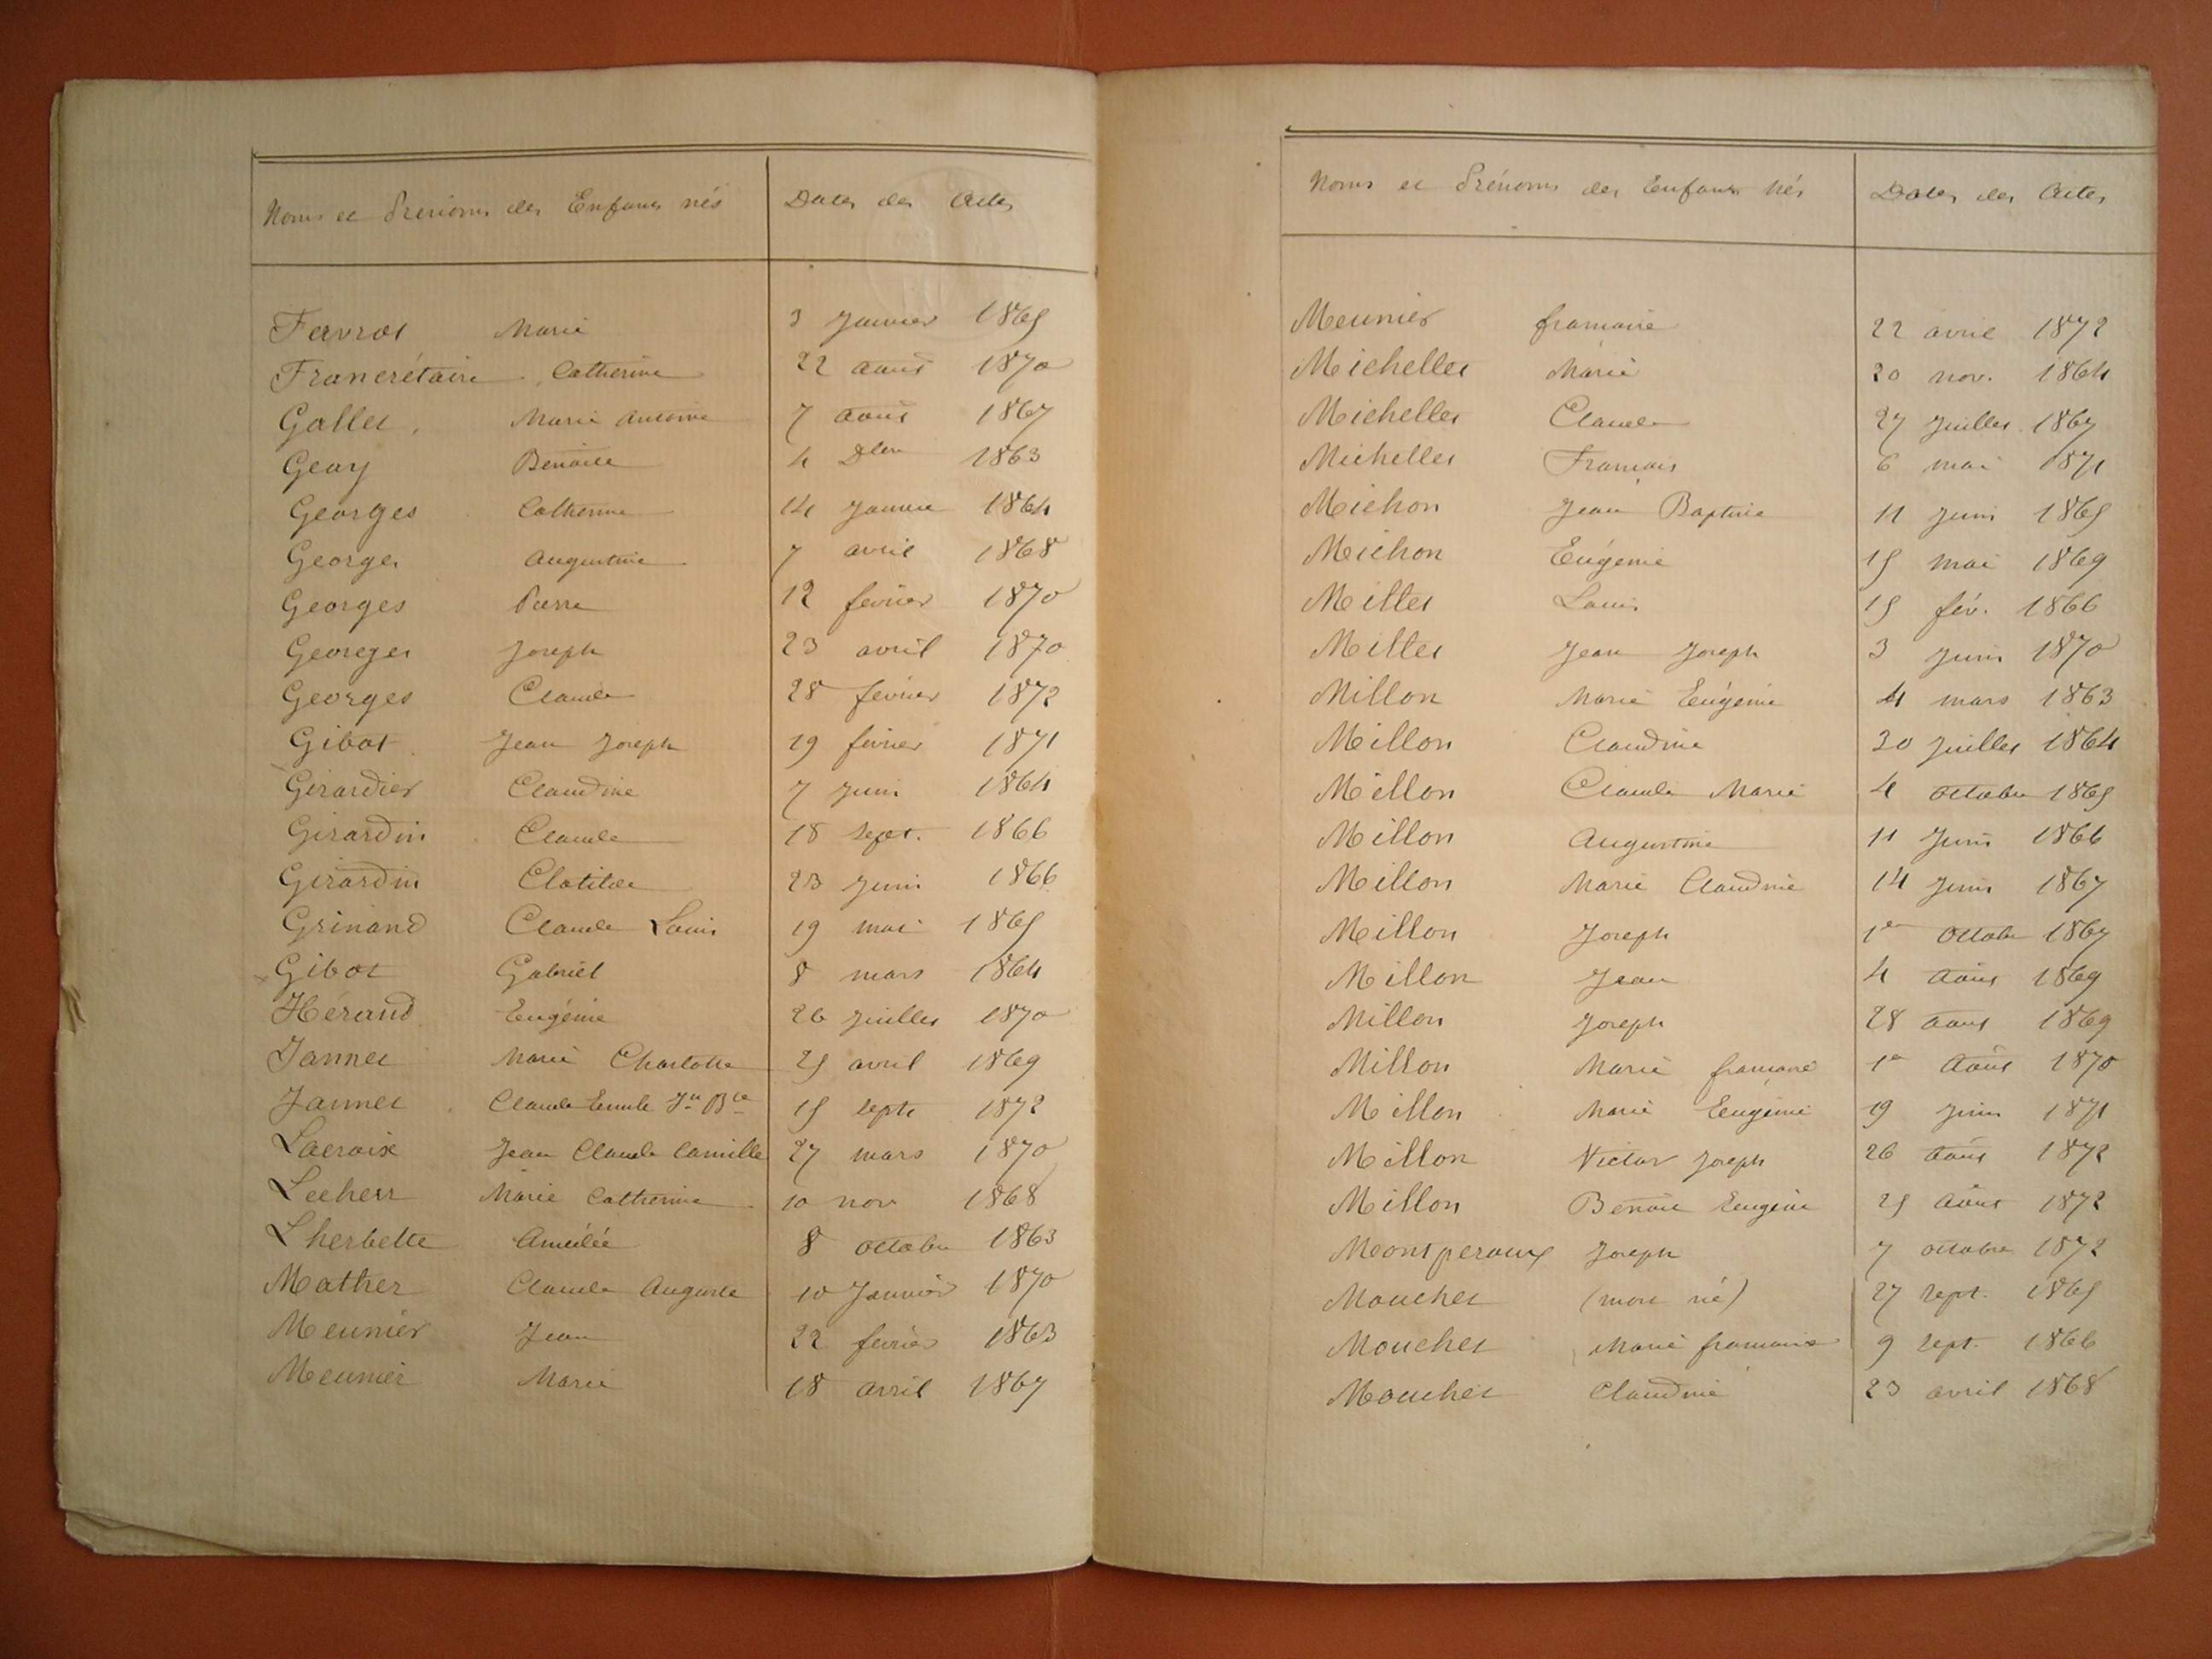 Noms et Prénoms des Enfans nés Dates des Actes
Favrot Marie 3 Janvier 1865
Francrétaire Catherine 22 aout 1870
Gallet Marie Antoine 7 aout 1867
Geay Benoite 4 Dbre 1863
Georges Catherine 14 Janvier 1864
Georges Augustine 7 avril 1868
Georges Pierre 12 février 1870
Georges Joseph 23 avril 1870
Georges Claude 28 février 1872
Gibot Jean Joseph 19 février 1871
Girardier Claudine 7 Juin 1864
Girardin Claude 18 sept. 1866
Girardin Clotilde 23 Juin 1866
Grinand Claude Louis 19 mai 1865
Gibot Gabriel 8 mars 1864
Héraud Eugénie 26 Juillet 1870
Jannet Marie Charlotte 25 avril 1869
Jannet Claude Emile Jn Bte 15 septe 1872
Lacroix Jean Claude Camille 27 mars 1870
Lecherr Marie Catherine 10 nov 1868
Lherbette Amélée 8 octobre 1863
Mather Claude Auguste 10 Janvier 1870
Meunier Jean 22 février 1863
Meunier Marie 18 avril 1867
Noms et Prénoms des Enfans nés Dates des Actes
Meunier francoise 22 avril 1872
Michellet Marie 20 nov. 1864
Michellet Claude 27 Juillet 1867
Michellet Francois 6 mai 1871
Michon Jean Baptiste 11 Juin 1865
Michon Eugénie 15 mai 1869
Millet Louis 15 fév. 1866
Millet Jean Joseph 3 Juin 1870
Millon Marie Eugénie 4 mars 1863
Millon Claudine 30 Juillet 1864
Millon Claude Marie 4 octobre 1865
Millon Augustine 11 Juin 1866
Millon Marie Claudine 14 Juin 1867
Millon Joseph 1er Octobre 1867
Millon Jean 4 Août 1869
Millon Joseph 28 Aout 1869
Millon Marie françoise 1er Août 1870
Millon Marie Eugénie 19 Juin 1871
Millon Victor Joseph 26 Août 1872
Millon Benoit Eugène 25 Août 1872
Montperoux Joseph 7 octobre 1872
Mouchet (mort né) 27 sept. 1865
Mouchet Marie francoise 9 sept. 1866
Mouchet Claudine 23 avril 1868